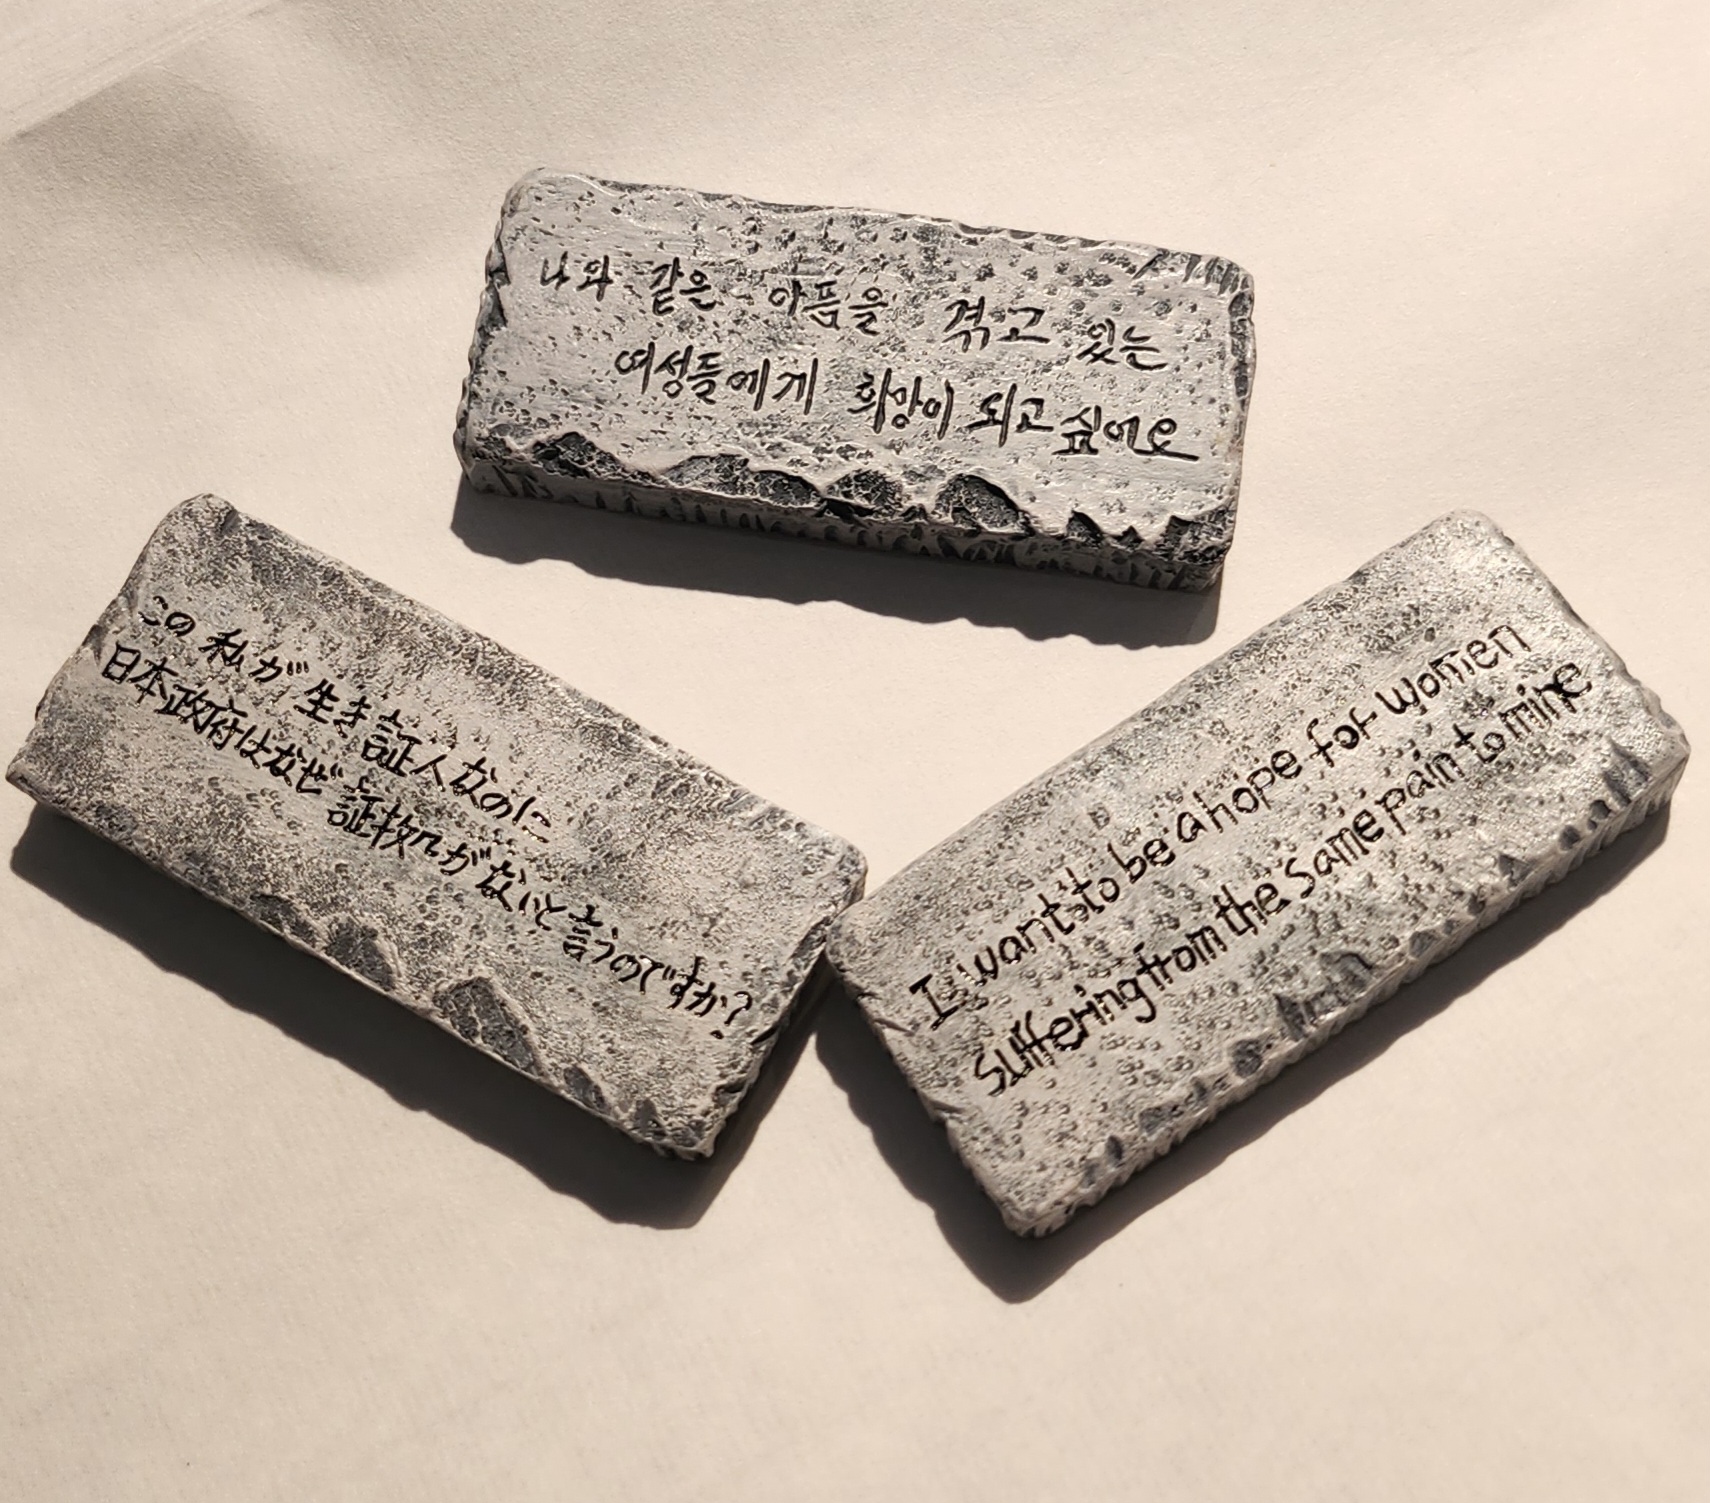 나와 같은 아픔을 겪고 있는
여성들에게 희망이 되고 싶어요
この私が生き証人なのに
日本政府はなぜ証拠がないと言うのですか?
I want to be a hope for women
suffering from the same pain to mine